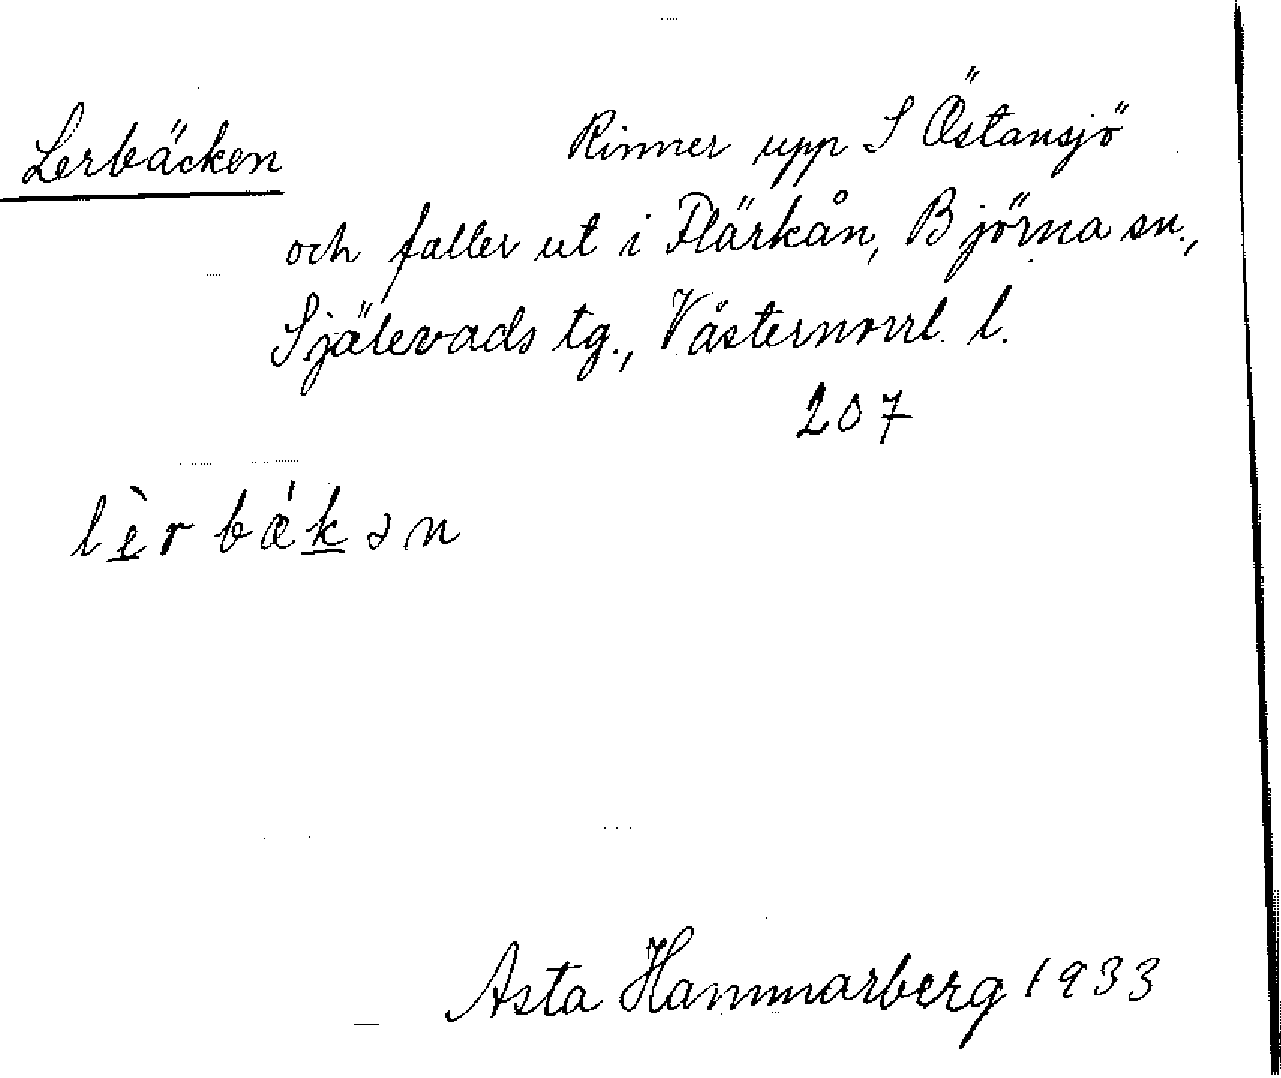 Lerbäcken Rinner upp S Östansjö
och faller ut i Flärkån, Björna sn.,
Själevads tg., Västernorrl. l.
207
lèrbǽkən
Asta Hammarberg 1933